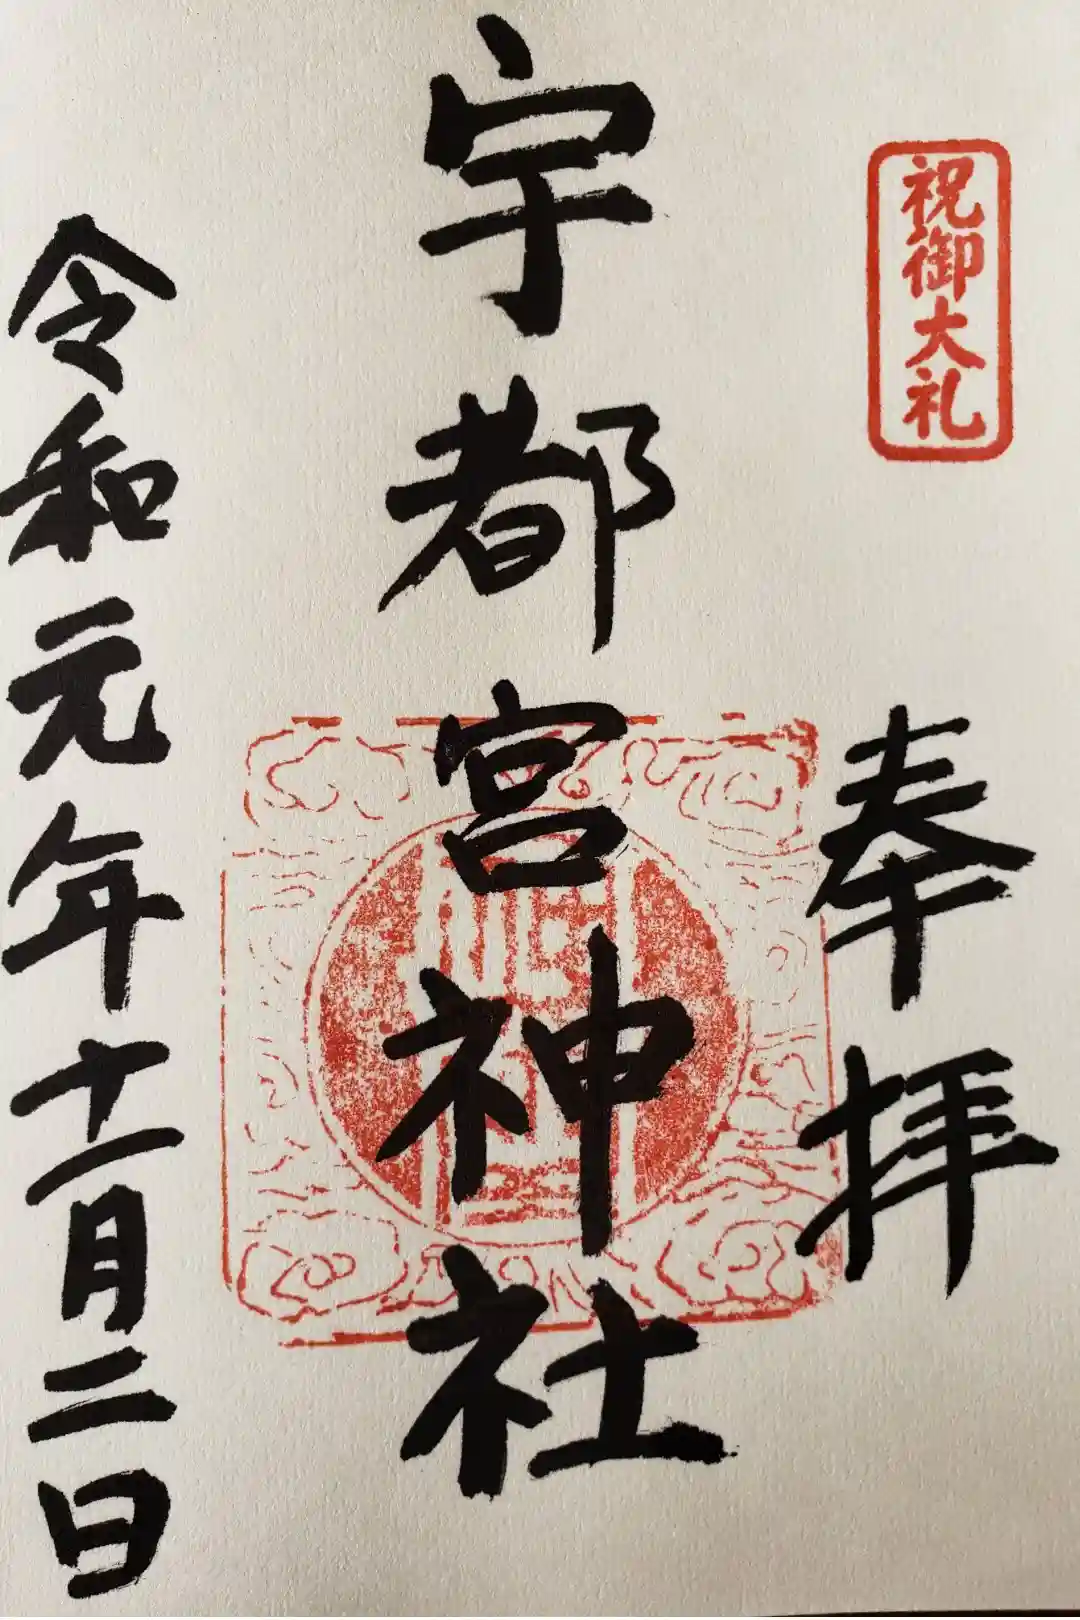 祝御大礼
奉拝
宇都宮神社
令和元年十一月二日